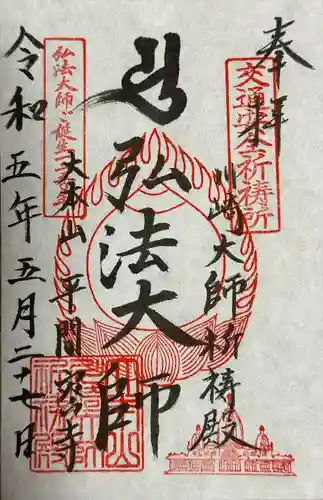 奉拝
交通安全祈祷所
川崎大師祈祷殿
弘法大師
大本山 平間寺
弘法大師ご誕生
令和五年五月二十七日